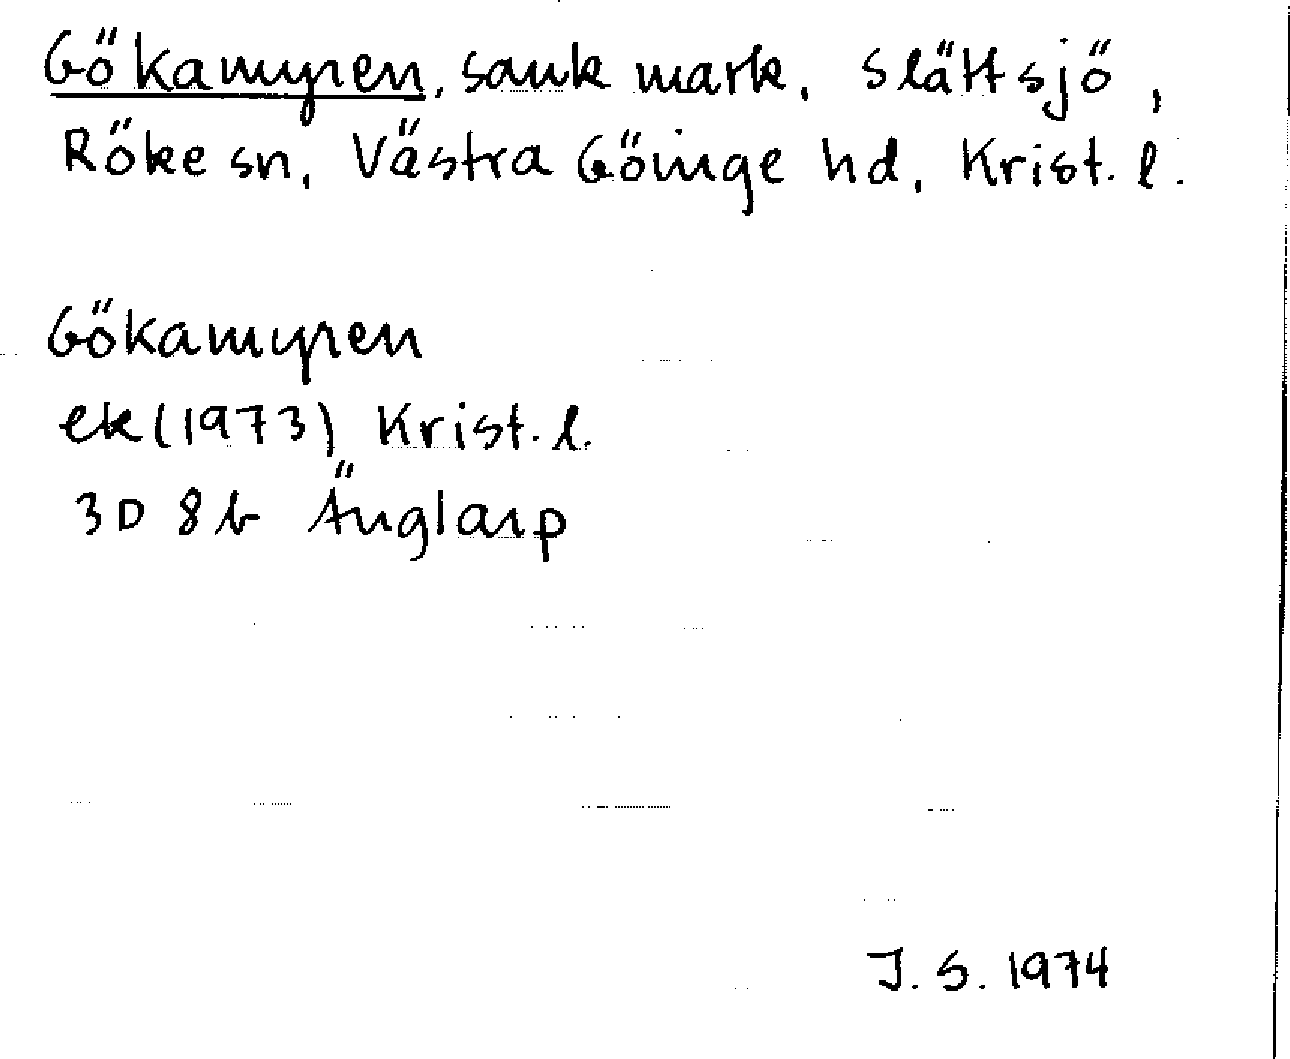 Gökamyren, sank mark, Slättsjö,
Röke sn, Västra Göinge hd, Krist. l.
Gökamyren
ek (1973) Krist. l.
3D 8b Änglarp
J. S. 1974